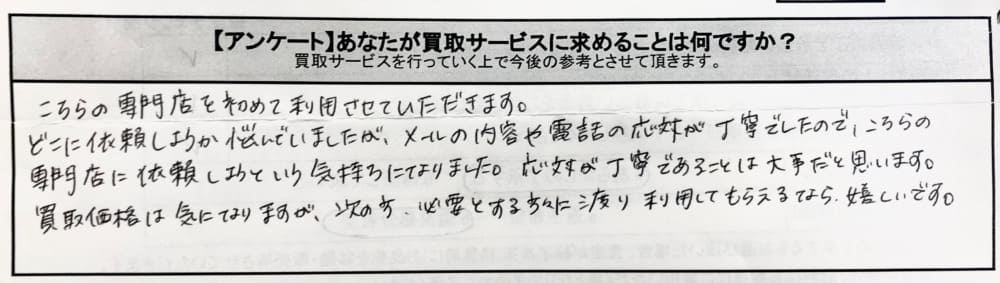 【アンケート】あなたが買取サービスに求めることは何ですか？
買取サービスを行っていく上で今後の参考とさせて頂きます。
こちらの専門店を初めて利用させていただきます。
どこに依頼しようか悩んでいましたが、メールの内容や電話の応対が丁寧でしたので、こちらの
専門店に依頼しようという気持ちになりました。応対が丁寧であることは大事だと思います。
買取価格は気になりますが、次の方、必要とする方々に渡り利用してもらえるなら、嬉しいです。